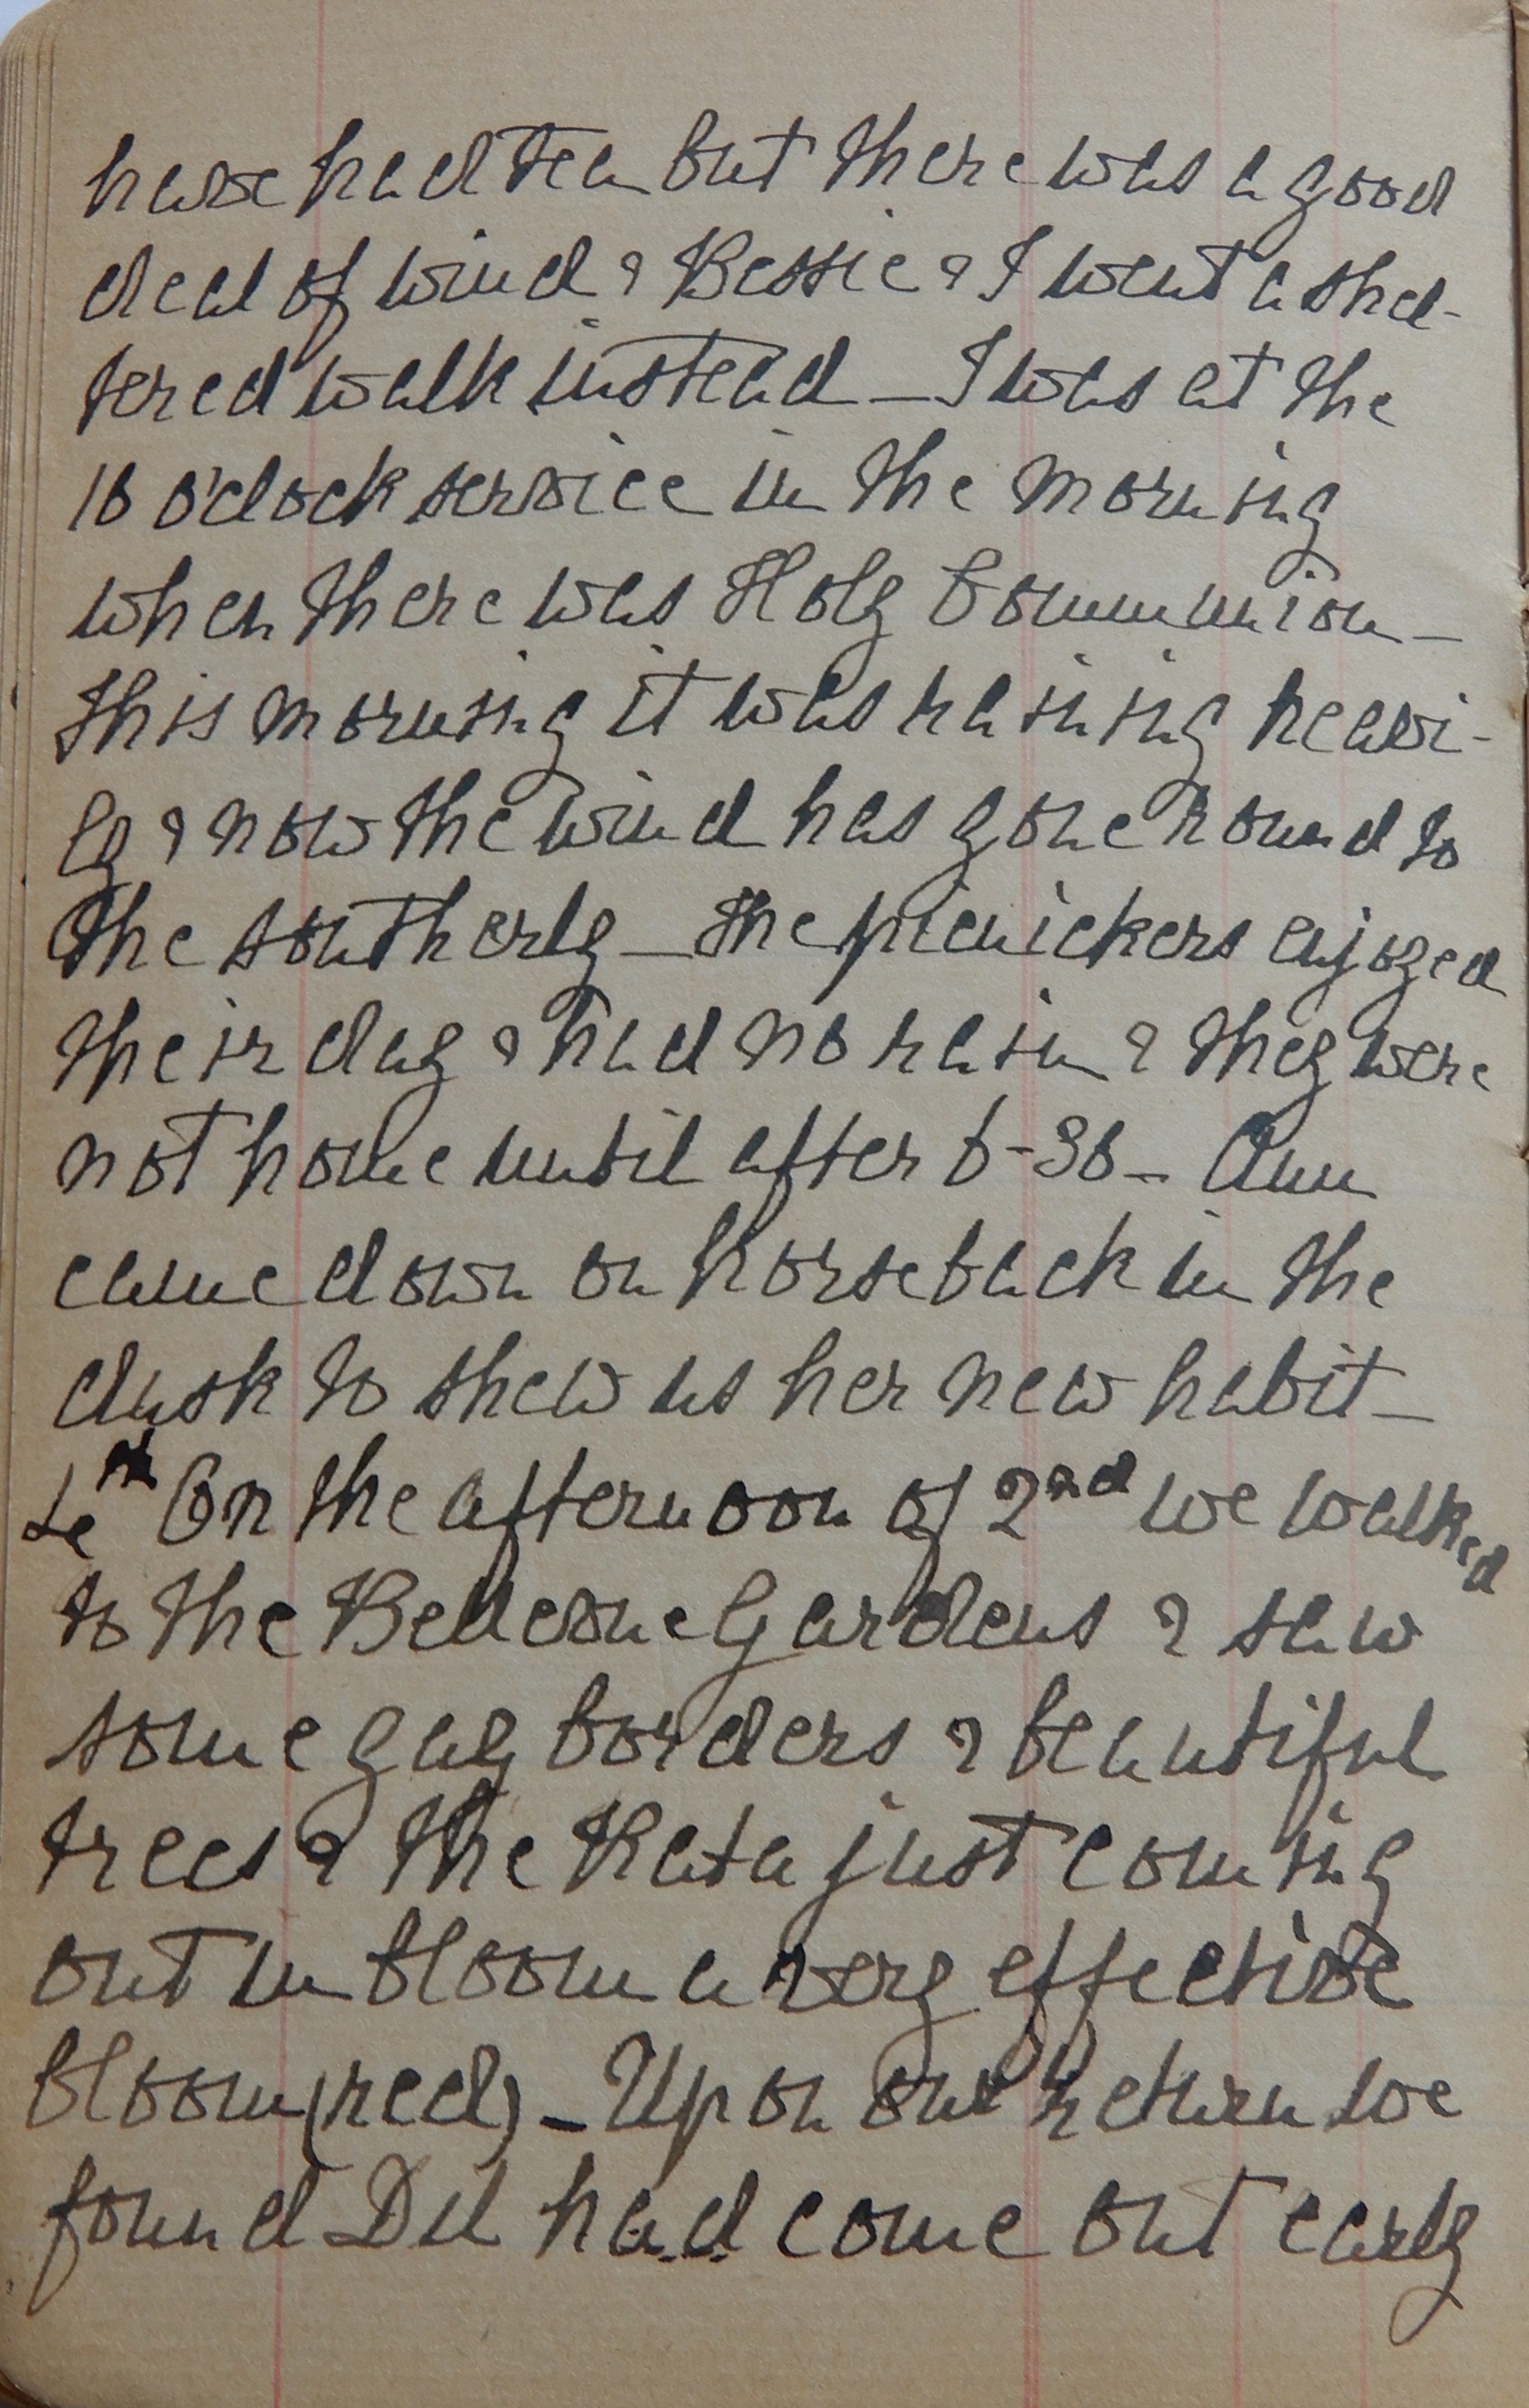 have had tea but there was a good
deal of wind & Bessie & I went a shel-
tered walk instead – I was at the
10 o'clock service in the morning
when there was Holy Communion –
This morning it was raining heavi-
ly & now the wind has gone round to
the southerly – The picnickers enjoyed
their day & had no rain & they were
not home until after 6-30 – Ann
came down on horseback in the
dusk to shew us her new habit –
On the afternoon of 2nd we walked
to the Bellevue Gardens & saw
some gay borders & beautiful
trees & the Rata just coming
out in bloom a very effective
bloom (red) – Upon our return we
found Dil had come out early